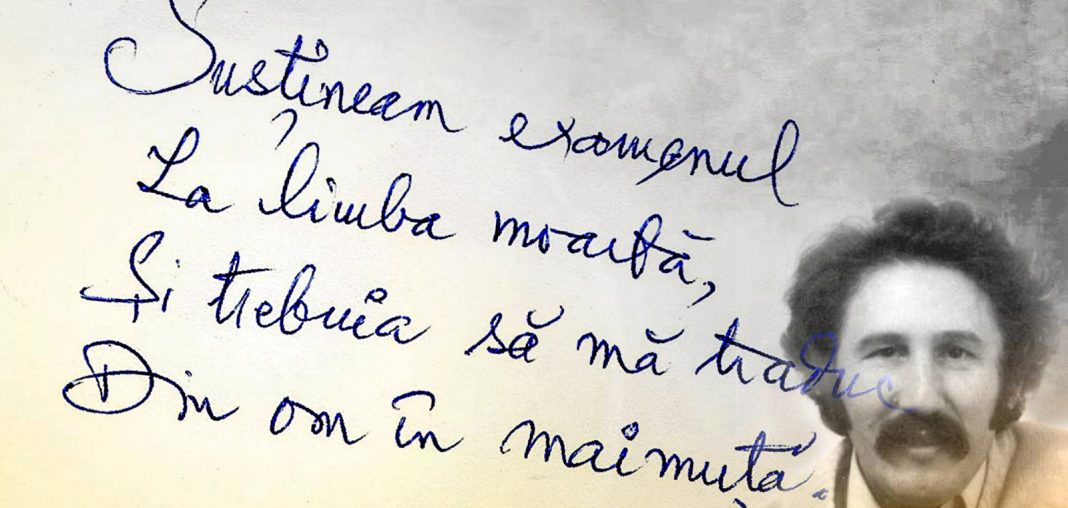 Susțineam examenul
La limba moartă,
Și trebuia să mă traduc
Din om în maimuță.